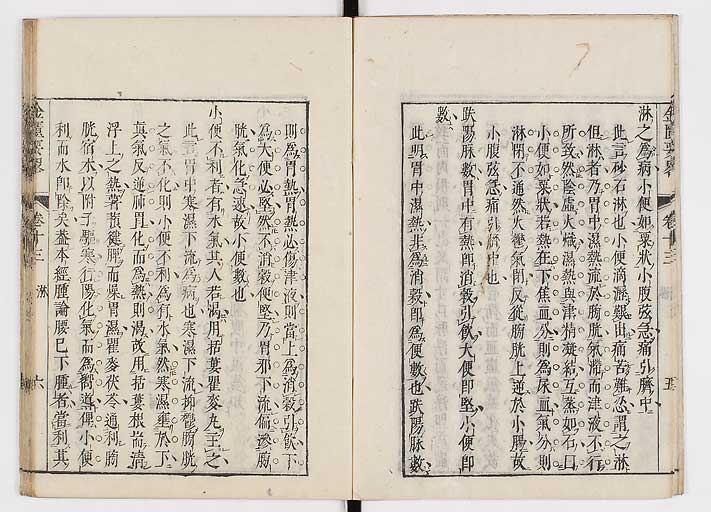 淋之為病小便如粟狀小腹弦急痛引臍中
此言砂石淋也小便滴瀝艱出痛苦難忍謂之淋
但淋者乃胃中濕熱流於膀胱氣滯而津液不行
所致然陰虛火熾濕熱與津精凝結互蒸如石曰
小便如粟狀若熱在下焦血分則為尿血氣分則
淋閉不通然火鬱氣閉反從膀胱上逆於小腸故
小腹弦急痛引臍中也
趺陽脉數胃中有熱即消穀引飲大便即堅小便即
數
此明胃中濕熱非為消穀即為便數也趺陽脉數
則為胃熱胃熱必傷津液則當上為消穀引飲下
為大便必堅然不消穀便堅乃胃邪下流偏滲膀
胱氣化急速故小便數也
小便不利者有水氣其人若渴用括蔞瞿麥丸主之
此言胃中寒濕下流為病也寒濕下流抑鬱膀胱
之氣不化則小便不利為有水氣然寒濕壅於下
真氣反逆肺胃化而為熱則渴故用括蔞根以清
浮上之熱薯蕷健脾而燥胃濕瞿麥茯苓通利膀
胱宿水以附子驅寒行陽化氣而為嚮導俾小便
利而水即除矣蓋本經腫論腰已下腫者當利其
金匱要畧 卷十三 淋 五
金匱要畧 卷十三 淋 六